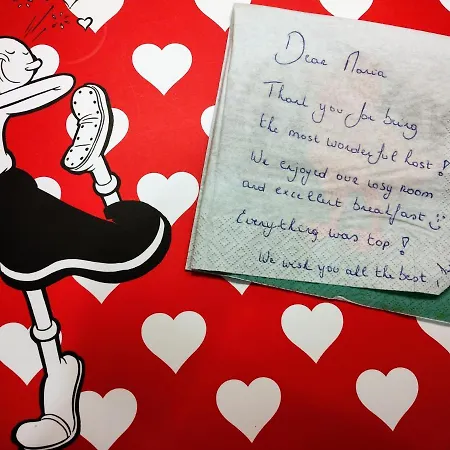 Dear Maria
Thank you for being
the most wonderful host!
We enjoyed our cosy room
and excellent breakfast
Everything was top!
We wish you all the best